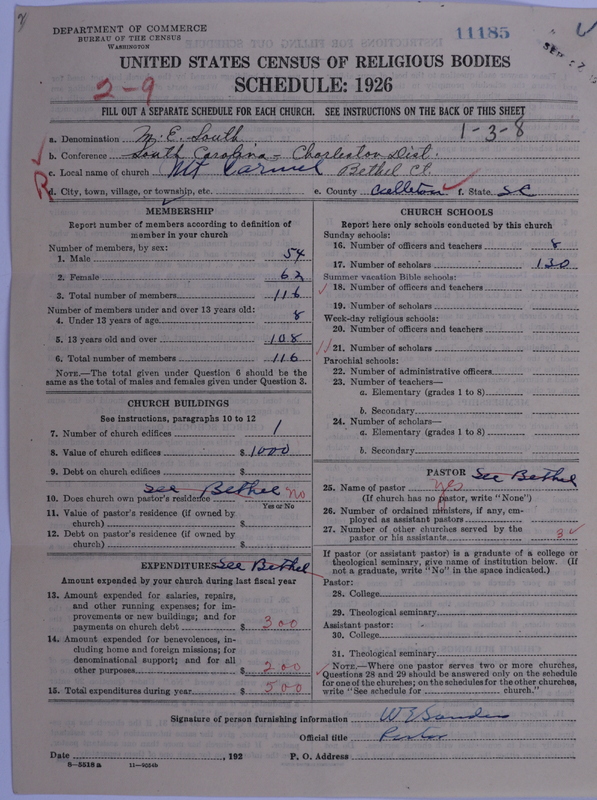 DEPARTMENT OF COMMERCE
BUREAU OF THE CENSUS
WASHINGTON
11185
UNITED STATES CENSUS OF RELIGIOUS BODIES
SCHEDULE: 1926
2-9
FILL OUT A SEPARATE SCHEDULE FOR EACH CHURCH. SEE INSTRUCTIONS ON THE BACK OF THIS SHEET
1-3-8
a. Denomination M. E. South
b. Conference South Carolina - Charleston Dist.
c. Local name of church Mt Carmel Bethel Ct.
d. City, town, village, or township, etc. e. County Colleton f. State SC
MEMBERSHIP
Report number of members according to definition of member in your church
Number of members, by sex:
1. Male 54
2. Female 62
3. Total number of members 116
Number of members under and over 13 years old:
4. Under 13 years of age 8
5. 13 years old and over 108
6. Total number of members 116
NOTE.—The total given under Question 6 should be the
same as the total of males and females given under Question 3.
CHURCH BUILDINGS
See instructions, paragraphs 10 to 12
7. Number of church edifices 1
8. Value of church edifices $ 1000
9. Debt on church edifices $
See Bethel
10. Does church own pastor's residence no
Yes or No
11. Value of pastor's residence (if owned by
church) $
12. Debt on pastor's residence (if owned by
church) $
EXPENDITURES See Bethel
Amount expended by your church during last fiscal year
13. Amount expended for salaries, repairs,
and other running expenses; for im-
provements or new buildings; and for
payments on church debt $ 300
14. Amount expended for benevolences, in-
cluding home and foreign missions; for
denominational support; and for all
other purposes $ 200
15. Total expenditures during year $ 500
CHURCH SCHOOLS
Report here only schools conducted by this church
Sunday schools:
16. Number of officers and teachers 8
17. Number of scholars 130
Summer vacation Bible schools:
18. Number of officers and teachers
19. Number of scholars
Week-day religious schools:
20. Number of officers and teachers
21. Number of scholars
Parochial schools:
22. Number of administrative officers
23. Number of teachers—
a. Elementary (grades 1 to 8)
b. Secondary
24. Number of scholars—
a. Elementary (grades 1 to 8)
b. Secondary
PASTOR See Bethel
25. Name of pastor yes
(If church has no pastor, write "None")
26. Number of ordained ministers, if any, em-
ployed as assistant pastors
27. Number of other churches served by the
pastor or his assistants 3
If pastor (or assistant pastor) is a graduate of a college or
theological seminary, give name of institution below. (If
not a graduate, write "No" in the space indicated.)
Pastor:
28. College
29. Theological seminary
Assistant pastor:
30. College
31. Theological seminary
NOTE.—Where one pastor serves two or more churches,
Questions 28 and 29 should be answered only on the schedule
for one of the churches; on the schedules for the other churches,
write "See schedule for church."
Signature of person furnishing information W E Sanders
Official title Pastor
Date , 192 P. O. Address
8—5518 a 11—9054b